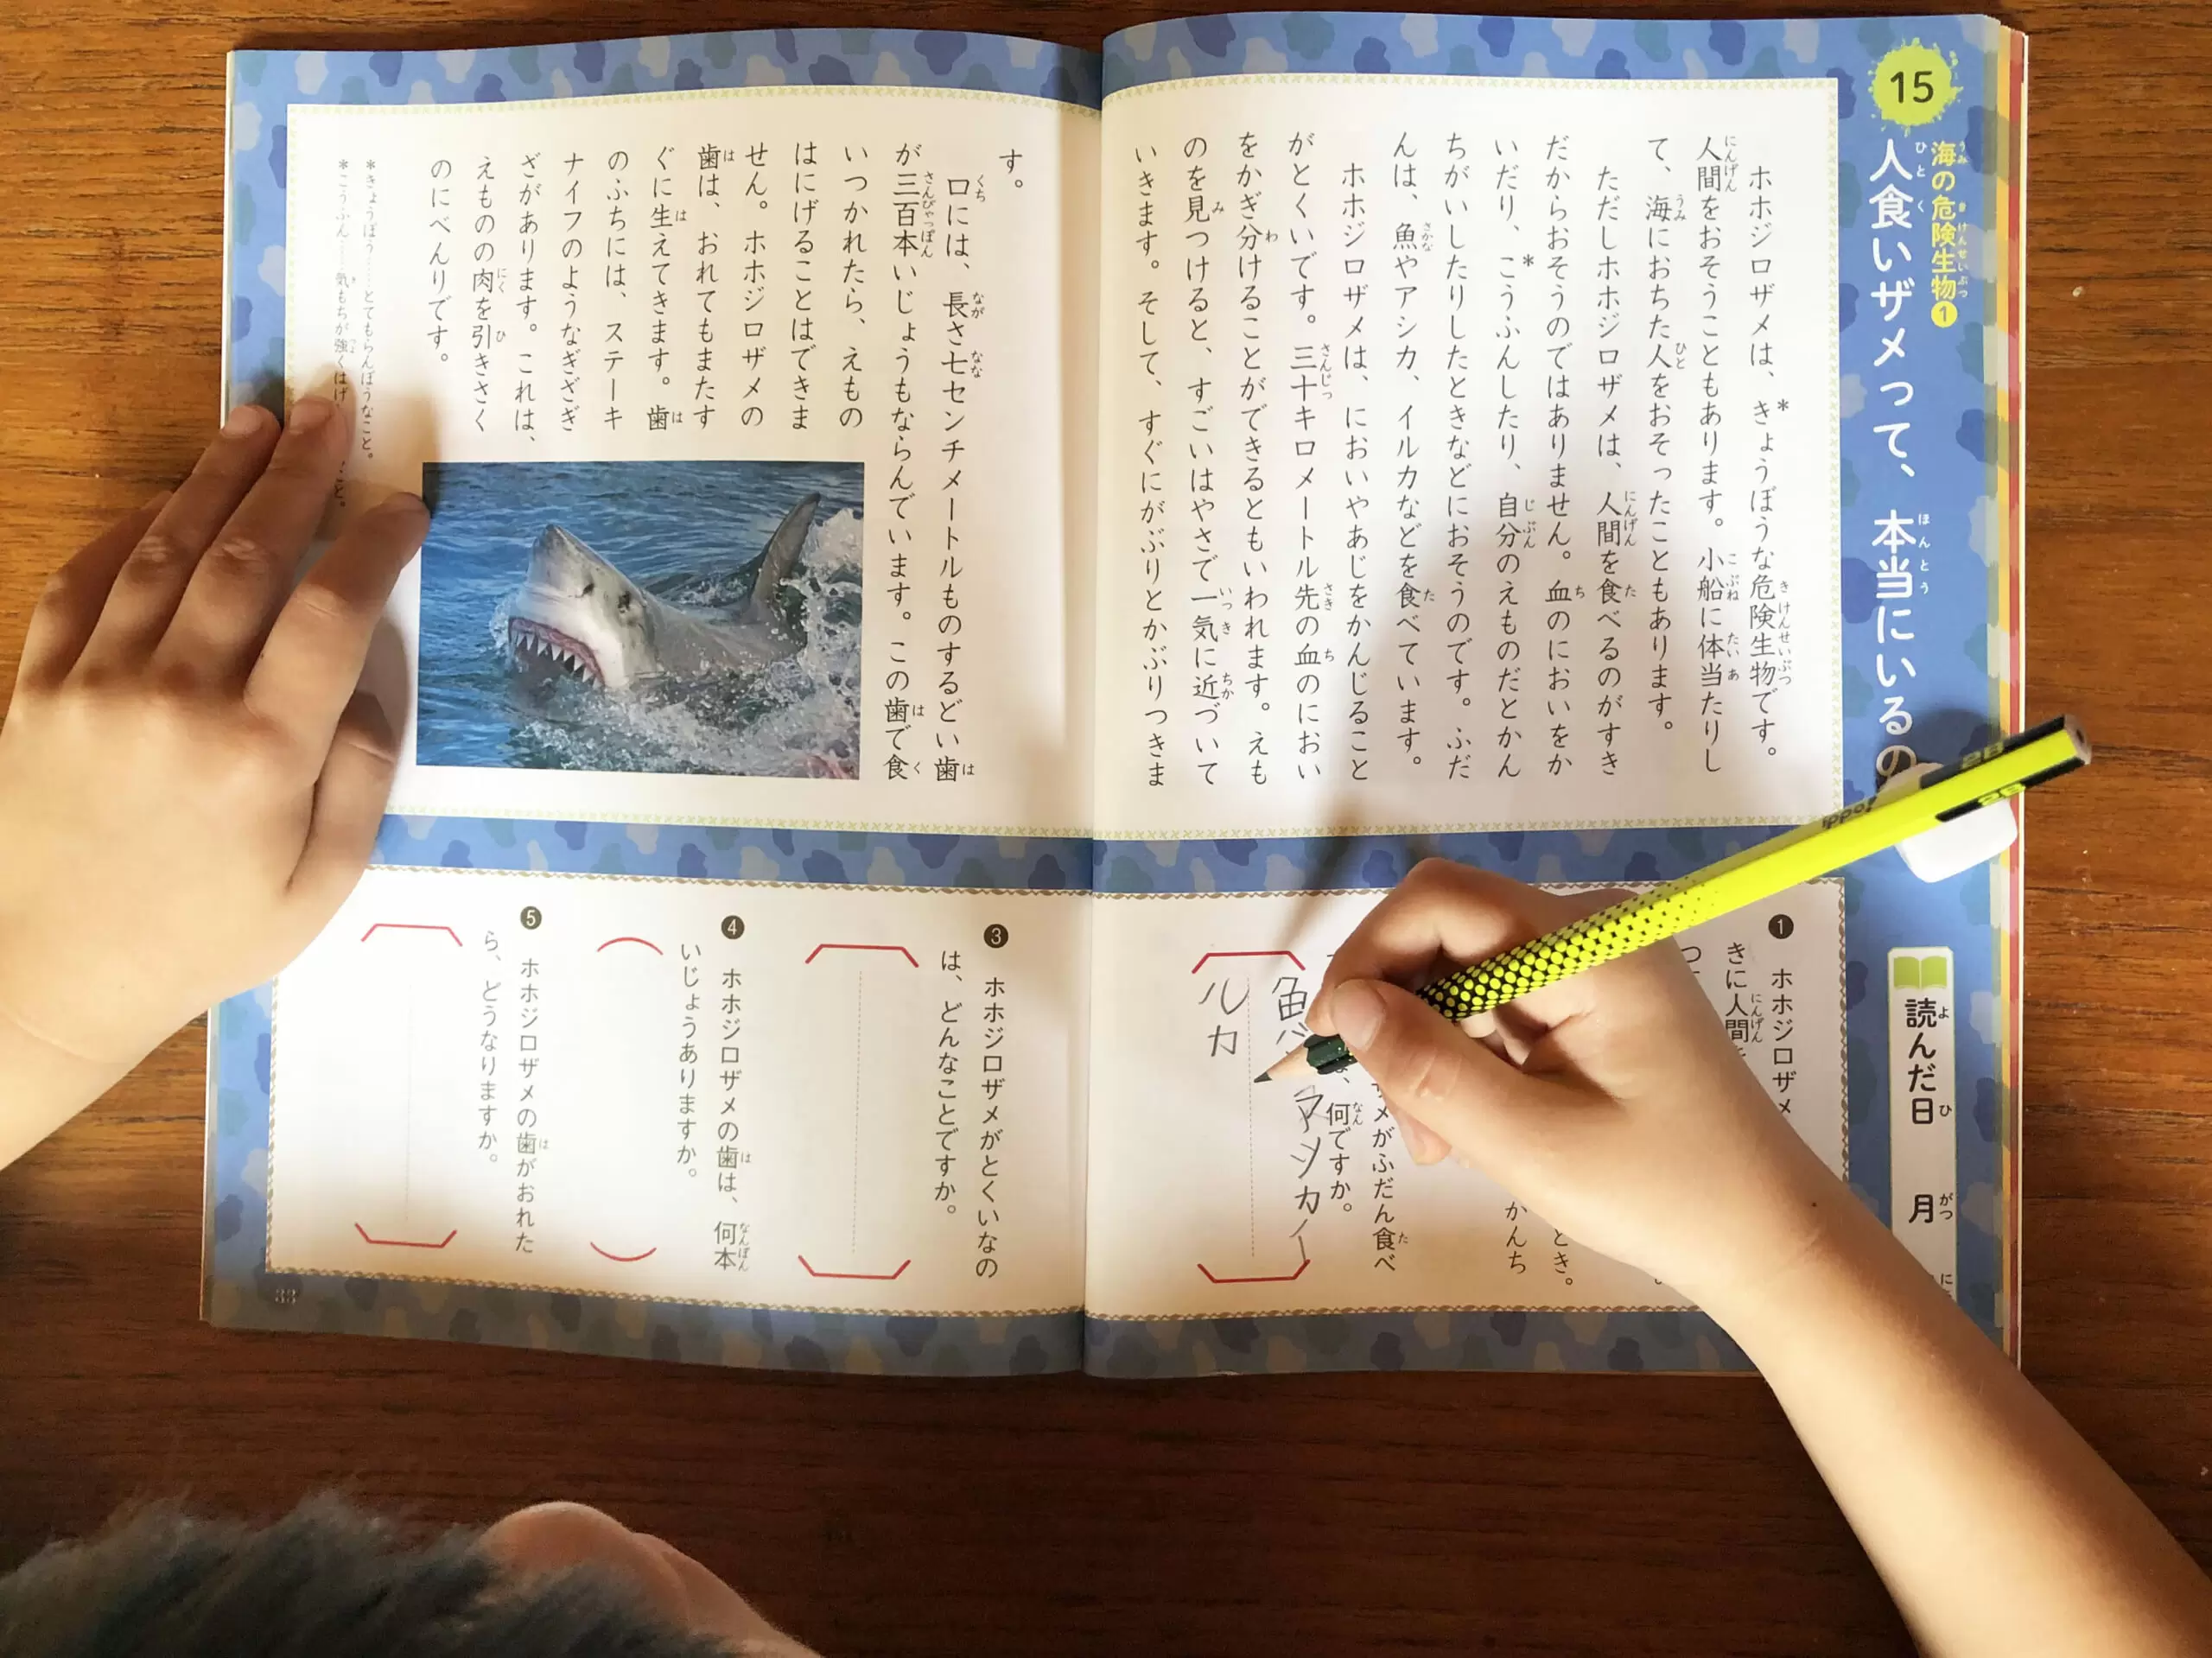 15
海の危険生物①
人食いザメって、本当にいるの
ホホジロザメは、*きょうぼうな危険生物です。
人間をおそうこともあります。小船に体当たりし
て、海におちた人をおそったこともあります。
ただしホホジロザメは、人間を食べるのがすき
だからおそうのではありません。血のにおいをか
いだり、*こうふんしたり、自分のえものだとかん
ちがいしたりしたときなどにおそうのです。ふだ
んは、魚やアシカ、イルカなどを食べています。
ホホジロザメは、においやあじをかんじること
がとくいです。三十キロメートル先の血のにおい
をかぎ分けることができるともいわれます。えも
のを見つけると、すごいはやさで一気に近づいて
いきます。そして、すぐにがぶりとかぶりつきま
す。
口には、長さ七センチメートルものするどい歯
が三百本いじょうもならんでいます。この歯で食
いつかれたら、えもの
はにげることはできま
せん。ホホジロザメの
歯は、おれてもまたす
ぐに生えてきます。歯
のふちには、ステーキ
ナイフのようなぎざぎ
ざがあります。これは、
えものの肉を引きさく
のにべんりです。
*きょうぼう……とてもらんぼうなこと。
*こうふん……気もちが強くはげ
こと。
読んだ日 月
❶ ホホジロザメ
きに人間を
とき。
かんち
メがふだん食べ
、何ですか。
魚
アシカ イ
ルカ
❸ ホホジロザメがとくいなの
は、どんなことですか。
❹ ホホジロザメの歯は、何本
いじょうありますか。
❺ ホホジロザメの歯がおれた
ら、どうなりますか。
33
2B
2B
ippo!